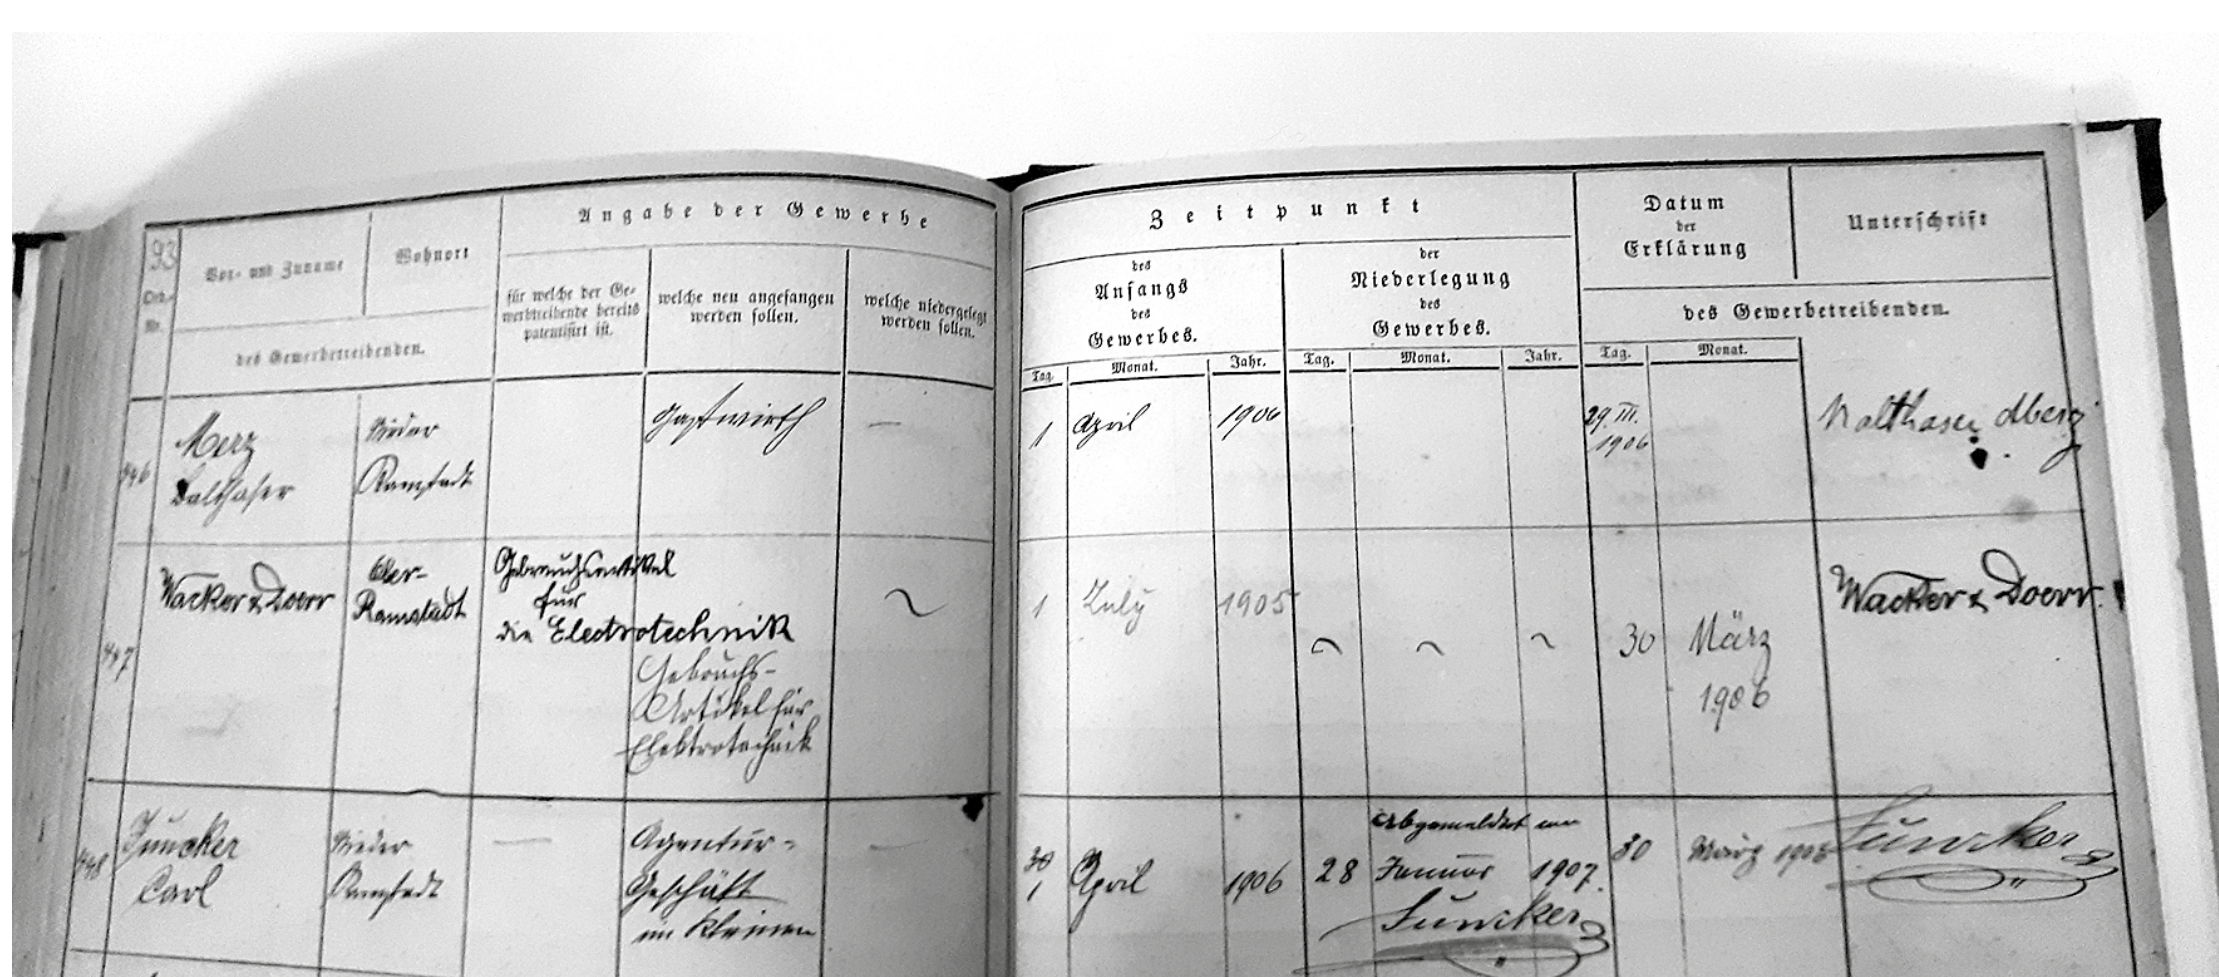 93
Ord.-
Nr.
Vor- und Zuname
Wohnort
des Gewerbetreibenden.
Angabe der Gewerbe
für welche der Ge-
werbtreibende bereits
patentisirt ist.
welche neu angefangen
werden sollen.
welche niedergelegt
werden sollen.
Zeitpunkt
des
Anfangs
des
Gewerbes.
der
Niederlegung
des
Gewerbes.
Datum
der
Erklärung
Unterschrift
des Gewerbetreibenden.
Tag.
Monat.
Jahr.
Tag.
Monat.
Jahr.
Tag.
Monat.
446
Merz
Balthaser
Nieder
Ramstadt
Gastwirth
—
1
April
1906
29. III.
1906
Balthaser
447
Wacker & Doerr
Ober-
Ramstadt
Gebrauchsartikel
für
die Electrotechnik
Gebrauchs-
Artikel für
Elektrotechnik
~
1
July
1905
~
~
~
30
März
1906
Wacker & Doerr.
448
Juncker
Carl
Nieder
Ramstadt
—
Agentur-
Geschäft
im Kleinen
—
30
1
April
1906
Abgemeldet am
28
Januar
1907.
Juncker
30
März 1906
Juncker